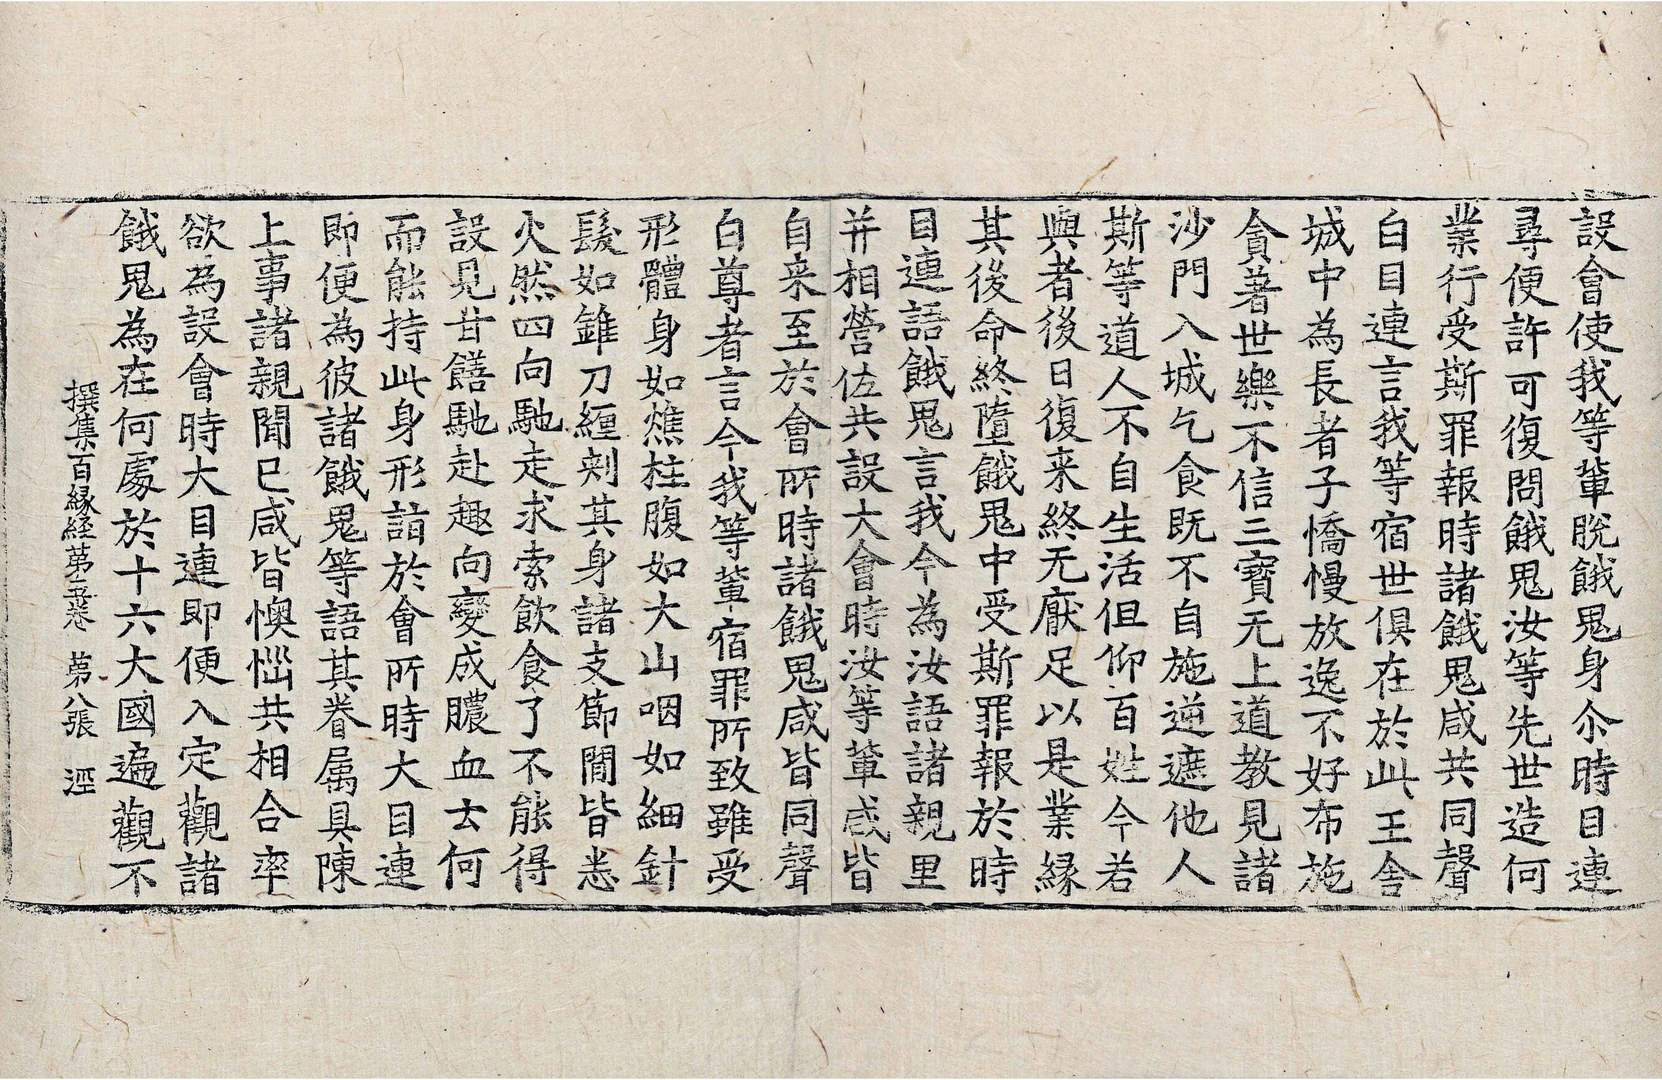 設會使我等軰脫餓鬼身尒時目連
尋便許可復問餓鬼汝等先世造何
業行受斯罪報時諸餓鬼咸共同聲
白目連言我等宿世俱在於此王舍
城中為長者子憍慢放逸不好布施
貪著世樂不信三寶无上道教見諸
沙門入城乞食既不自施逆遮他人
斯等道人不自生活但仰百姓今若
與者後日復来終无厭足以是業緣
其後命終墮餓鬼中受斯罪報於時
目連語餓鬼言我今為汝語諸親里
并相營佐共設大會時汝等軰咸皆
自来至於會所時諸餓鬼咸皆同聲
白尊者言今我等軰宿罪所致雖受
形體身如燋柱腹如大山咽如細針
髮如錐刀纒刾其身諸支節間皆悉
火然四向馳走求索飮食了不能得
設見甘饍馳赴趣向變成膿血去何
而能持此身形詣於會所時大目連
即便為彼諸餓鬼等語其眷属具陳
上事諸親聞已咸皆懊惱共相合率
欲為設會時大目連即便入定觀諸
餓鬼為在何處於十六大國遍觀不
撰集百緣經苐五卷 苐八張 涇